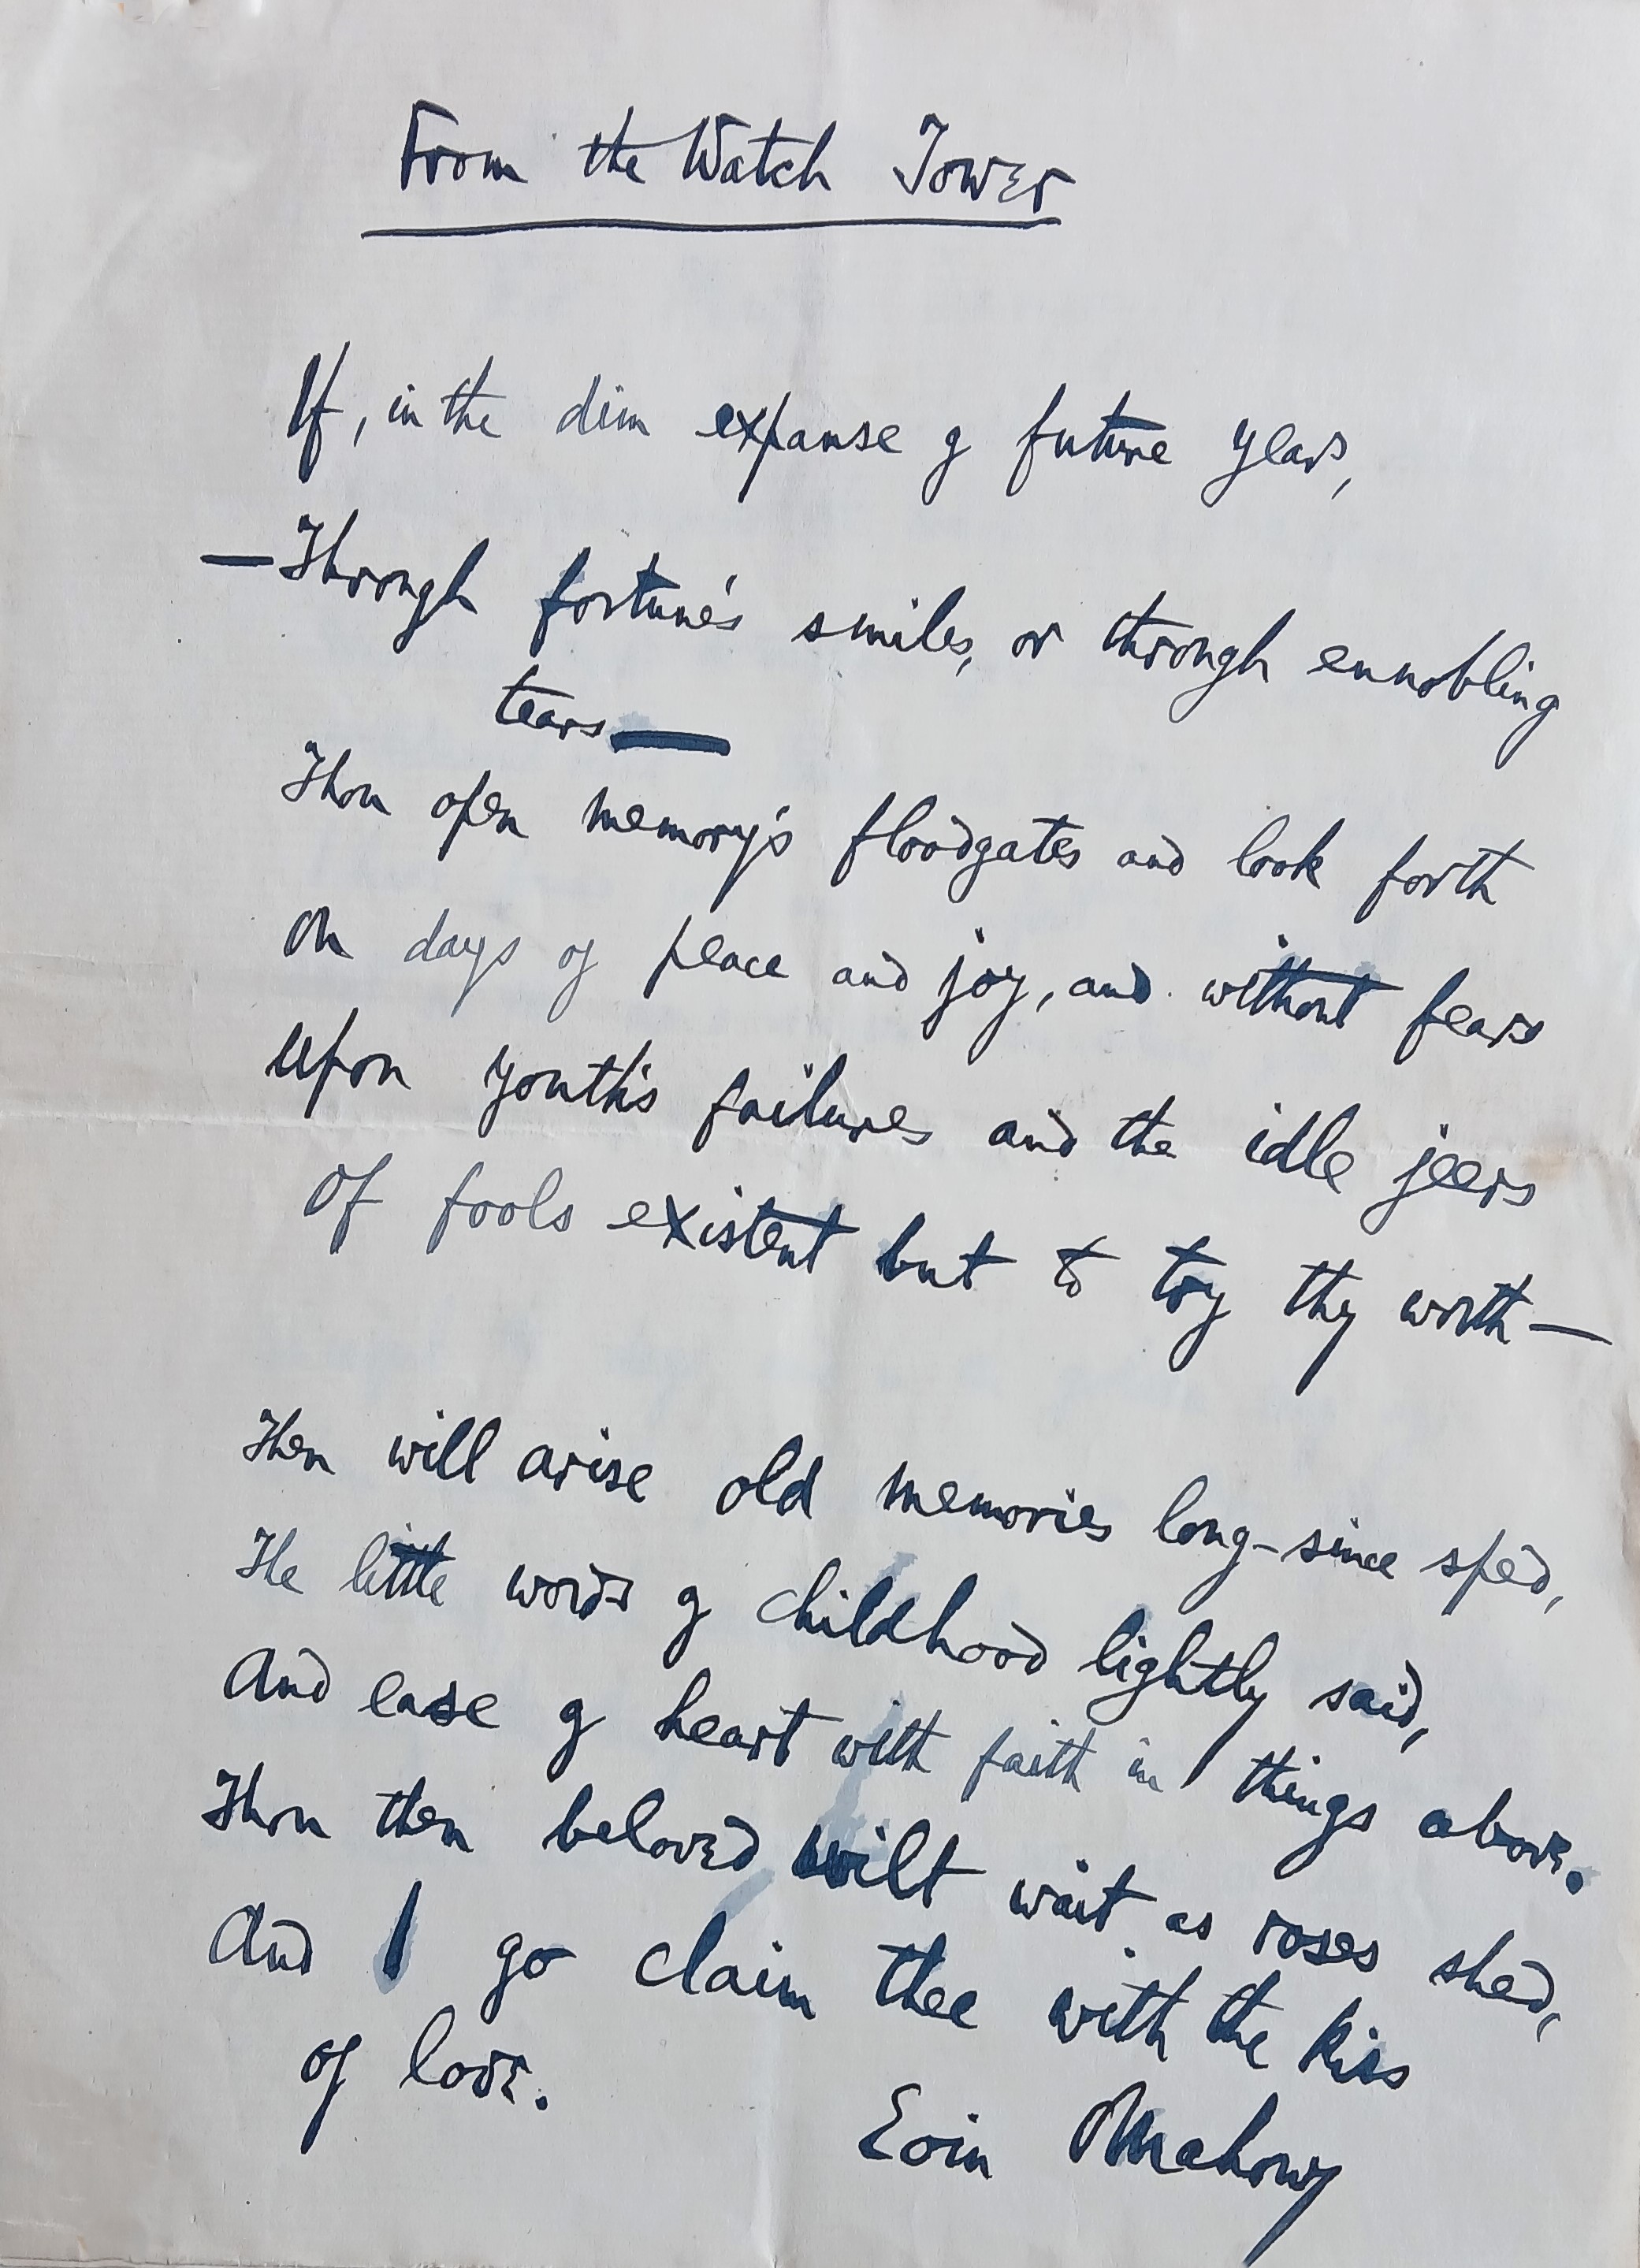 From the Watch Tower
If, in the dim expanse of future years,
—Through fortune's smiles, or through ennobling
tears—
Thou open memory's floodgates and look forth
On days of peace and joy, and without fears
Upon youth's failures and the idle jeers
Of fools existent but to try thy worth—
Then will arise old memories long-since sped,
The little words of childhood lightly said,
And ease of heart with faith in things above.
Thou then beloved wilt wait as roses shed,
And I go claim thee with the kiss
of love.
Eoin O'Mahony